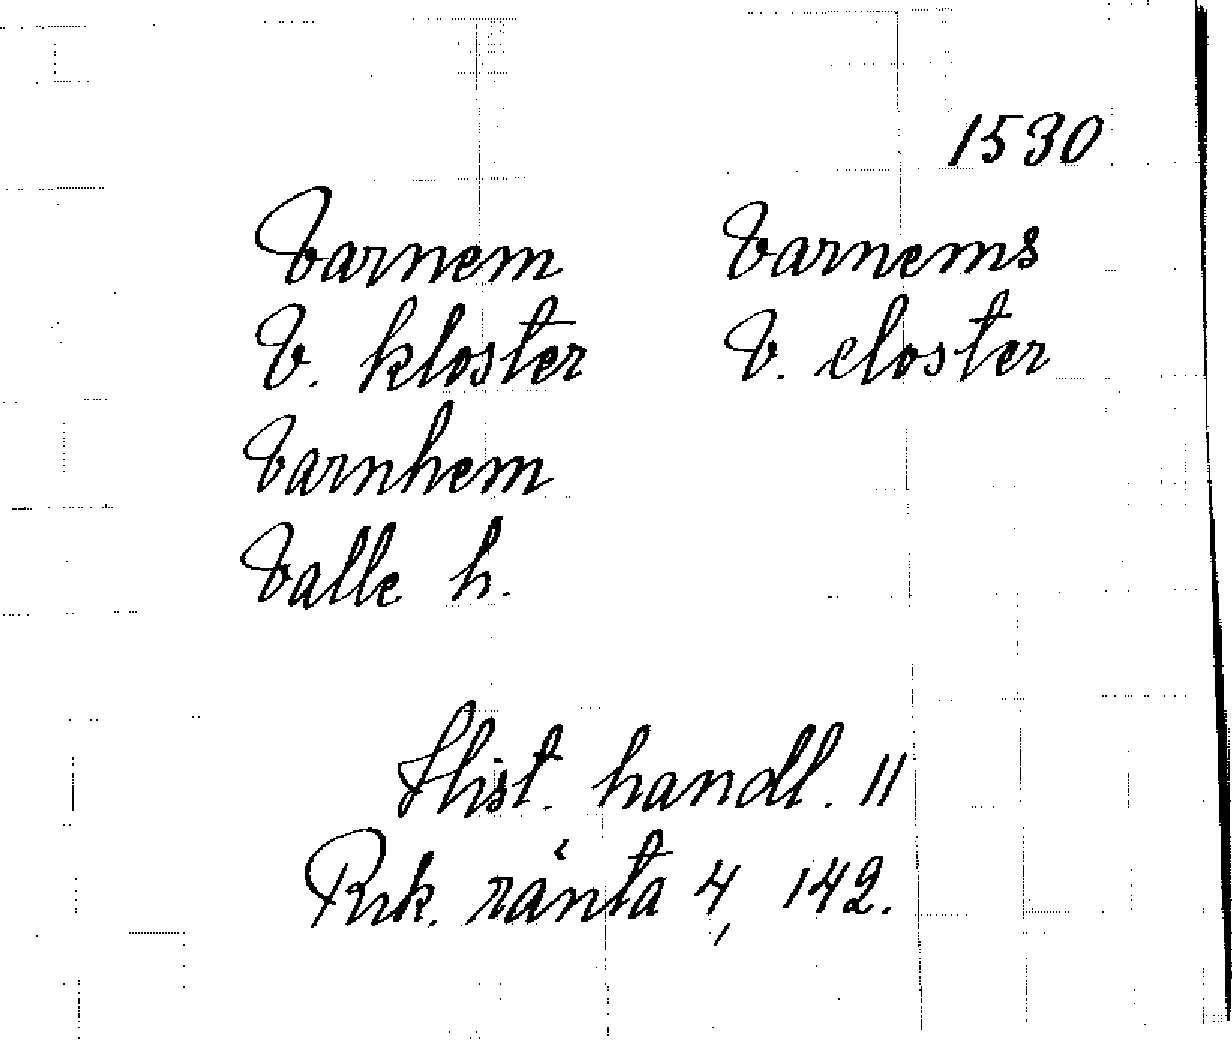 1530
Varnem Varnems
V. kloster V. closter
Varnhem
Valle h.
Hist. handl. 11
Rik. ränta 4, 142.